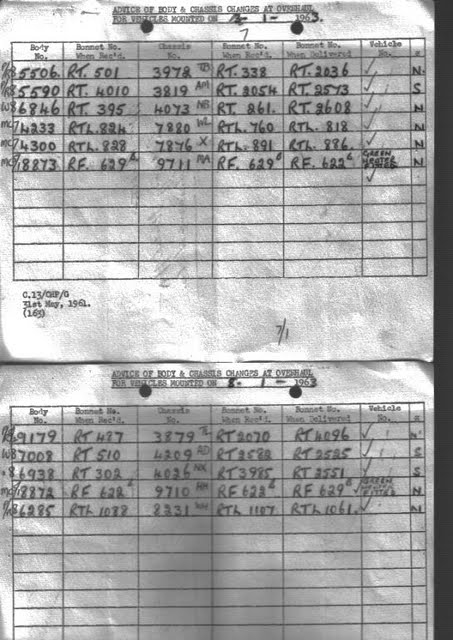 ADVICE OF BODY & CHASSIS CHANGES AT OVERHAUL
FOR VEHICLES MOUNTED ON 1 - 1963.
7
Body No. Bonnet No. When Rec'd. Chassis No. Bonnet No. When Rec'd. Bonnet No. When Delivered Vehicle No.
5506 RT. 501 3972 TD RT. 338 RT. 2036 ✓ N
5590 RT. 4010 3819 AM RT. 2054 RT. 2573 ✓ S
W8 6846 RT. 395 4073 NB RT. 261. RT. 2608 ✓ N
MC/ 4233 RTL. 824 7880 WL RTL. 760 RTL. 818 ✓ N
MC/ 4300 RTL. 828 7876 X RTL. 891 RTL. 886. ✓ N
MC/ 8873 RF. 629 9711 MA RF. 629 RF. 622 GREEN ✓ N
C.13/OHP/G
31st May, 1961.
(163)
7/1
ADVICE OF BODY & CHASSIS CHANGES AT OVERHAUL
FOR VEHICLES MOUNTED ON 8. 1 - 1963
Body No. Bonnet No. When Rec'd. Chassis No. Bonnet No. When Rec'd. Bonnet No. When Delivered Vehicle No.
9179 RT 427 3879 TL RT 2070 RT 4096 ✓
W8 7008 RT 510 4209 AD RT 2582 RT 2525 ✓ S
8 6938 RT 302 4026 NX RT 3985 RT 2551 ✓ S
MC/ 8872 RF 622 9710 RF 622 RF 629 GREEN N
6285 RTL 1088 8231 RTL 1107 RTL 1061. ✓ N